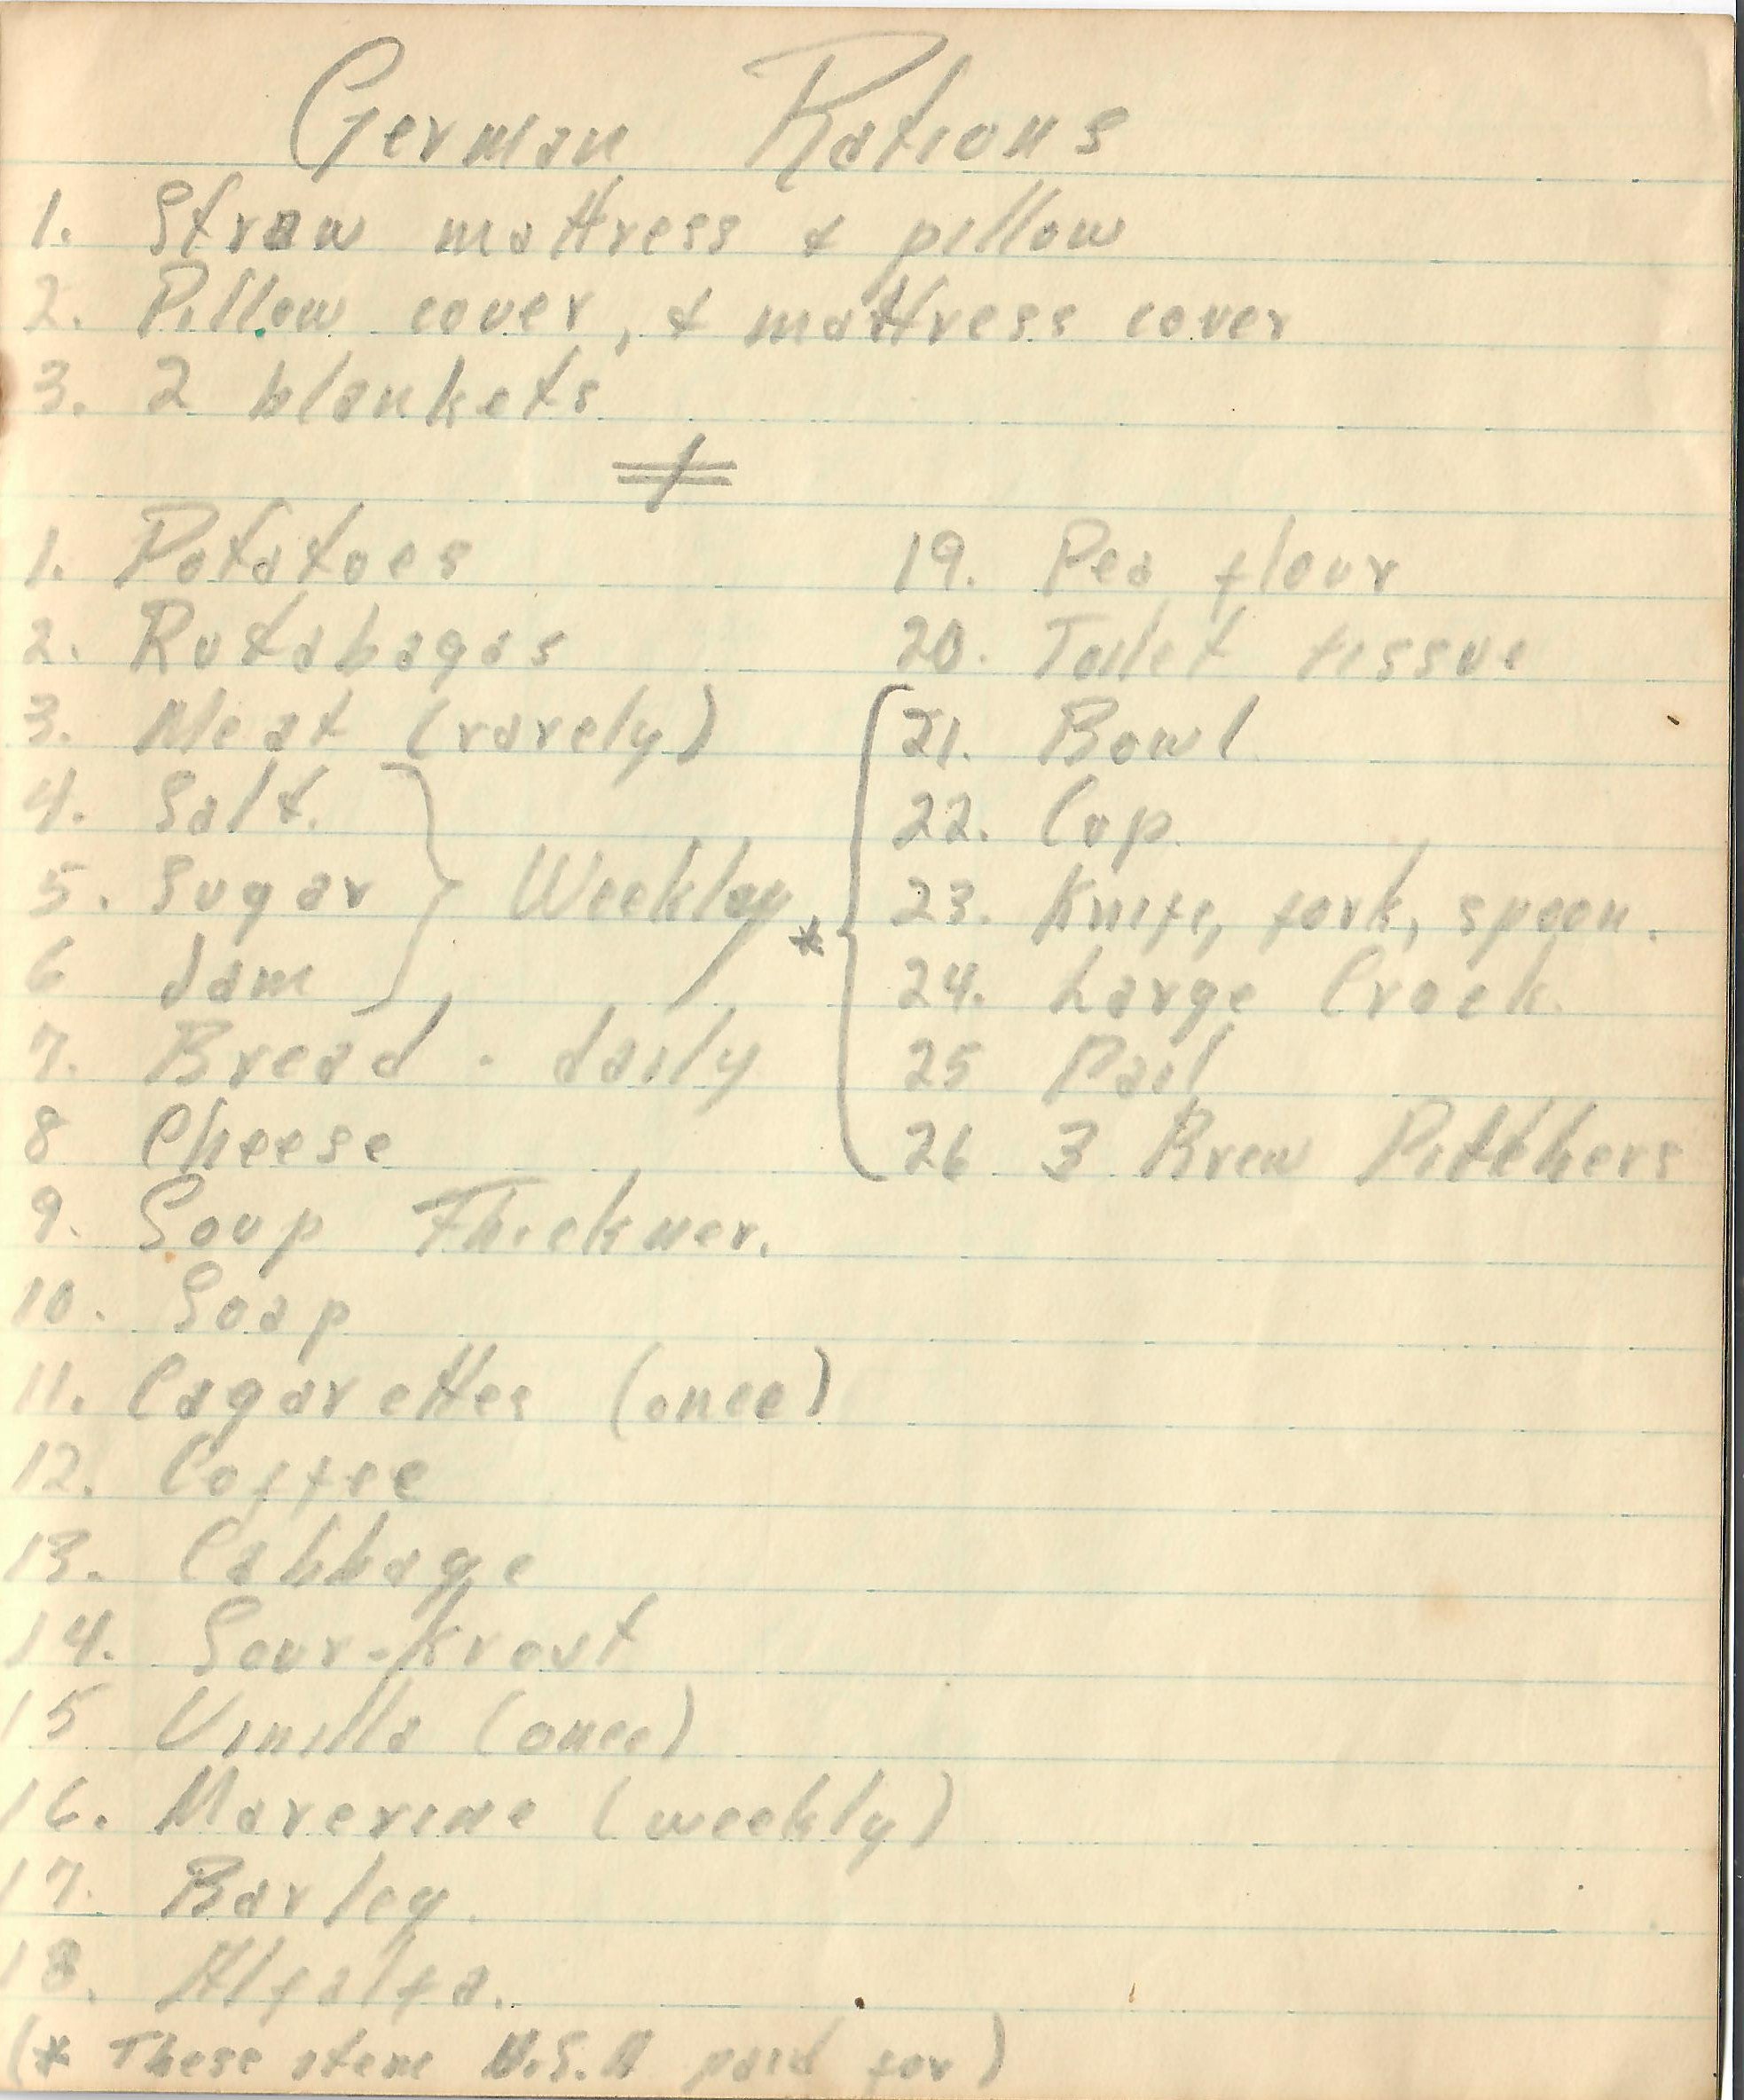 German Rations
1. Straw mattress & pillow
2. Pillow cover, & mattress cover
3. 2 blankets
1. Potatoes
2. Rutabagas
3. Meat (rarely)
4. Salt.
5. Sugar
Weekly
6 Jam
7. Bread - daily
8 Cheese
9. Soup Thickner.
10. Soap
11. Cagarettes (once)
12. Coffee
13. Cabbage
14. Sour-Krout
15 Vinilla (once)
16. Marerine (weekly)
17. Barley.
18. Alfalfa.
19. Pea flour
20. Toilet tissue
21. Bowl
22. Cup.
*
23. Knife, fork, spoon.
24. Large Crock.
25 Pail
26 3 Brew Pitchers
(* These item U.S.A paid for)